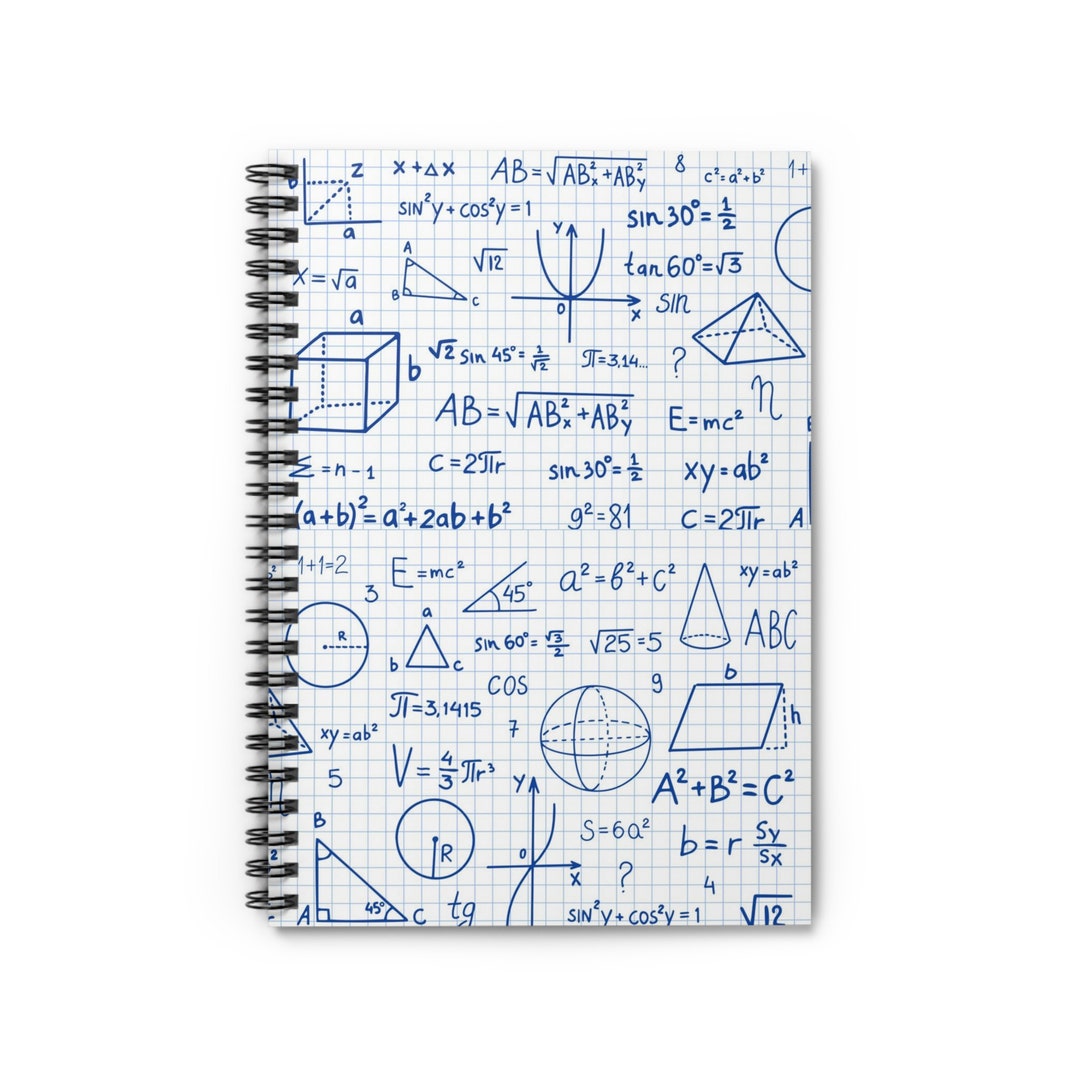 z x+Δx AB=√AB²ₓ+AB²ᵧ 8 c²=a²+b² 1+
b sin²y+cos²y=1 sin30°=1/2
a A y
x=√a √12 tan60°=√3
B C 0 x sin
a √2 sin 45°=1/√2 π=3,14... ?
b n
AB=√AB²ₓ+AB²ᵧ E=mc²
Σ=n-1 C=2πr sin30°=1/2 xy=ab²
(a+b)²=a²+2ab+b² 9²=81 C=2πr A
1+1=2 E=mc² 45° a²=b²+c² xy=ab²
3
R a sin60°=√3/2 √25=5 ABC
b c
cos 9 b
π=3,1415 7 h
xy=ab²
5 V=4/3πr³ y A²+B²=C²
B R 0 x S=6a² b=r Sy/Sx
2 ? 4
A 45° C tg sin²y+cos²y=1 √12